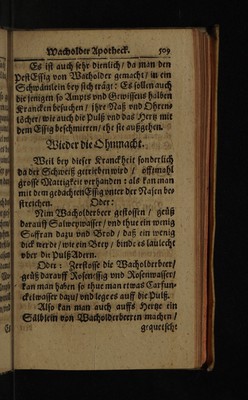 Wacholder Apotheck. 509
Es ist auch sehr dienlich / da man den
PestEssig von Wacholder gemacht / in ein
Schwämlein bey sich trägt: Es sollen auch
die jenigen so Ampts und Gewissens halben
Krancken besuchen / ihre Naß und Ohren-
löcher / wie auch die Pulß und das Hertz mit
dem Essig beschmieren / ehe sie außgehen.
Wieder die Ohnmacht.
Weil bey dieser Kranckheit sonderlich
da der Schweiß getrieben wird / offtmahl
grosse Mattigkeit vorhanden: als kan man
mit dem gedachen Essig unter der Nasen be-
streichen. Oder:
Nim Wacholderbeer gestossen / geüß
darauff Salveywasser / und thue ein wenig
Saffran dazu und Brod / daß ein wenig
dick werde / wie ein Brey / binde es laulecht
über die PulßAdern.
Oder: Zerstosse die Wacholderbeer /
geüß darauff Rosenessig und Rosenwasser /
kan man haben so thue man etwas Carfun-
ckelwasser dazu / und lege es auff die Pulß.
Also kan man auch auffs Hertze ein
Sälblein von Wacholderbeeren machen /
gequetscht